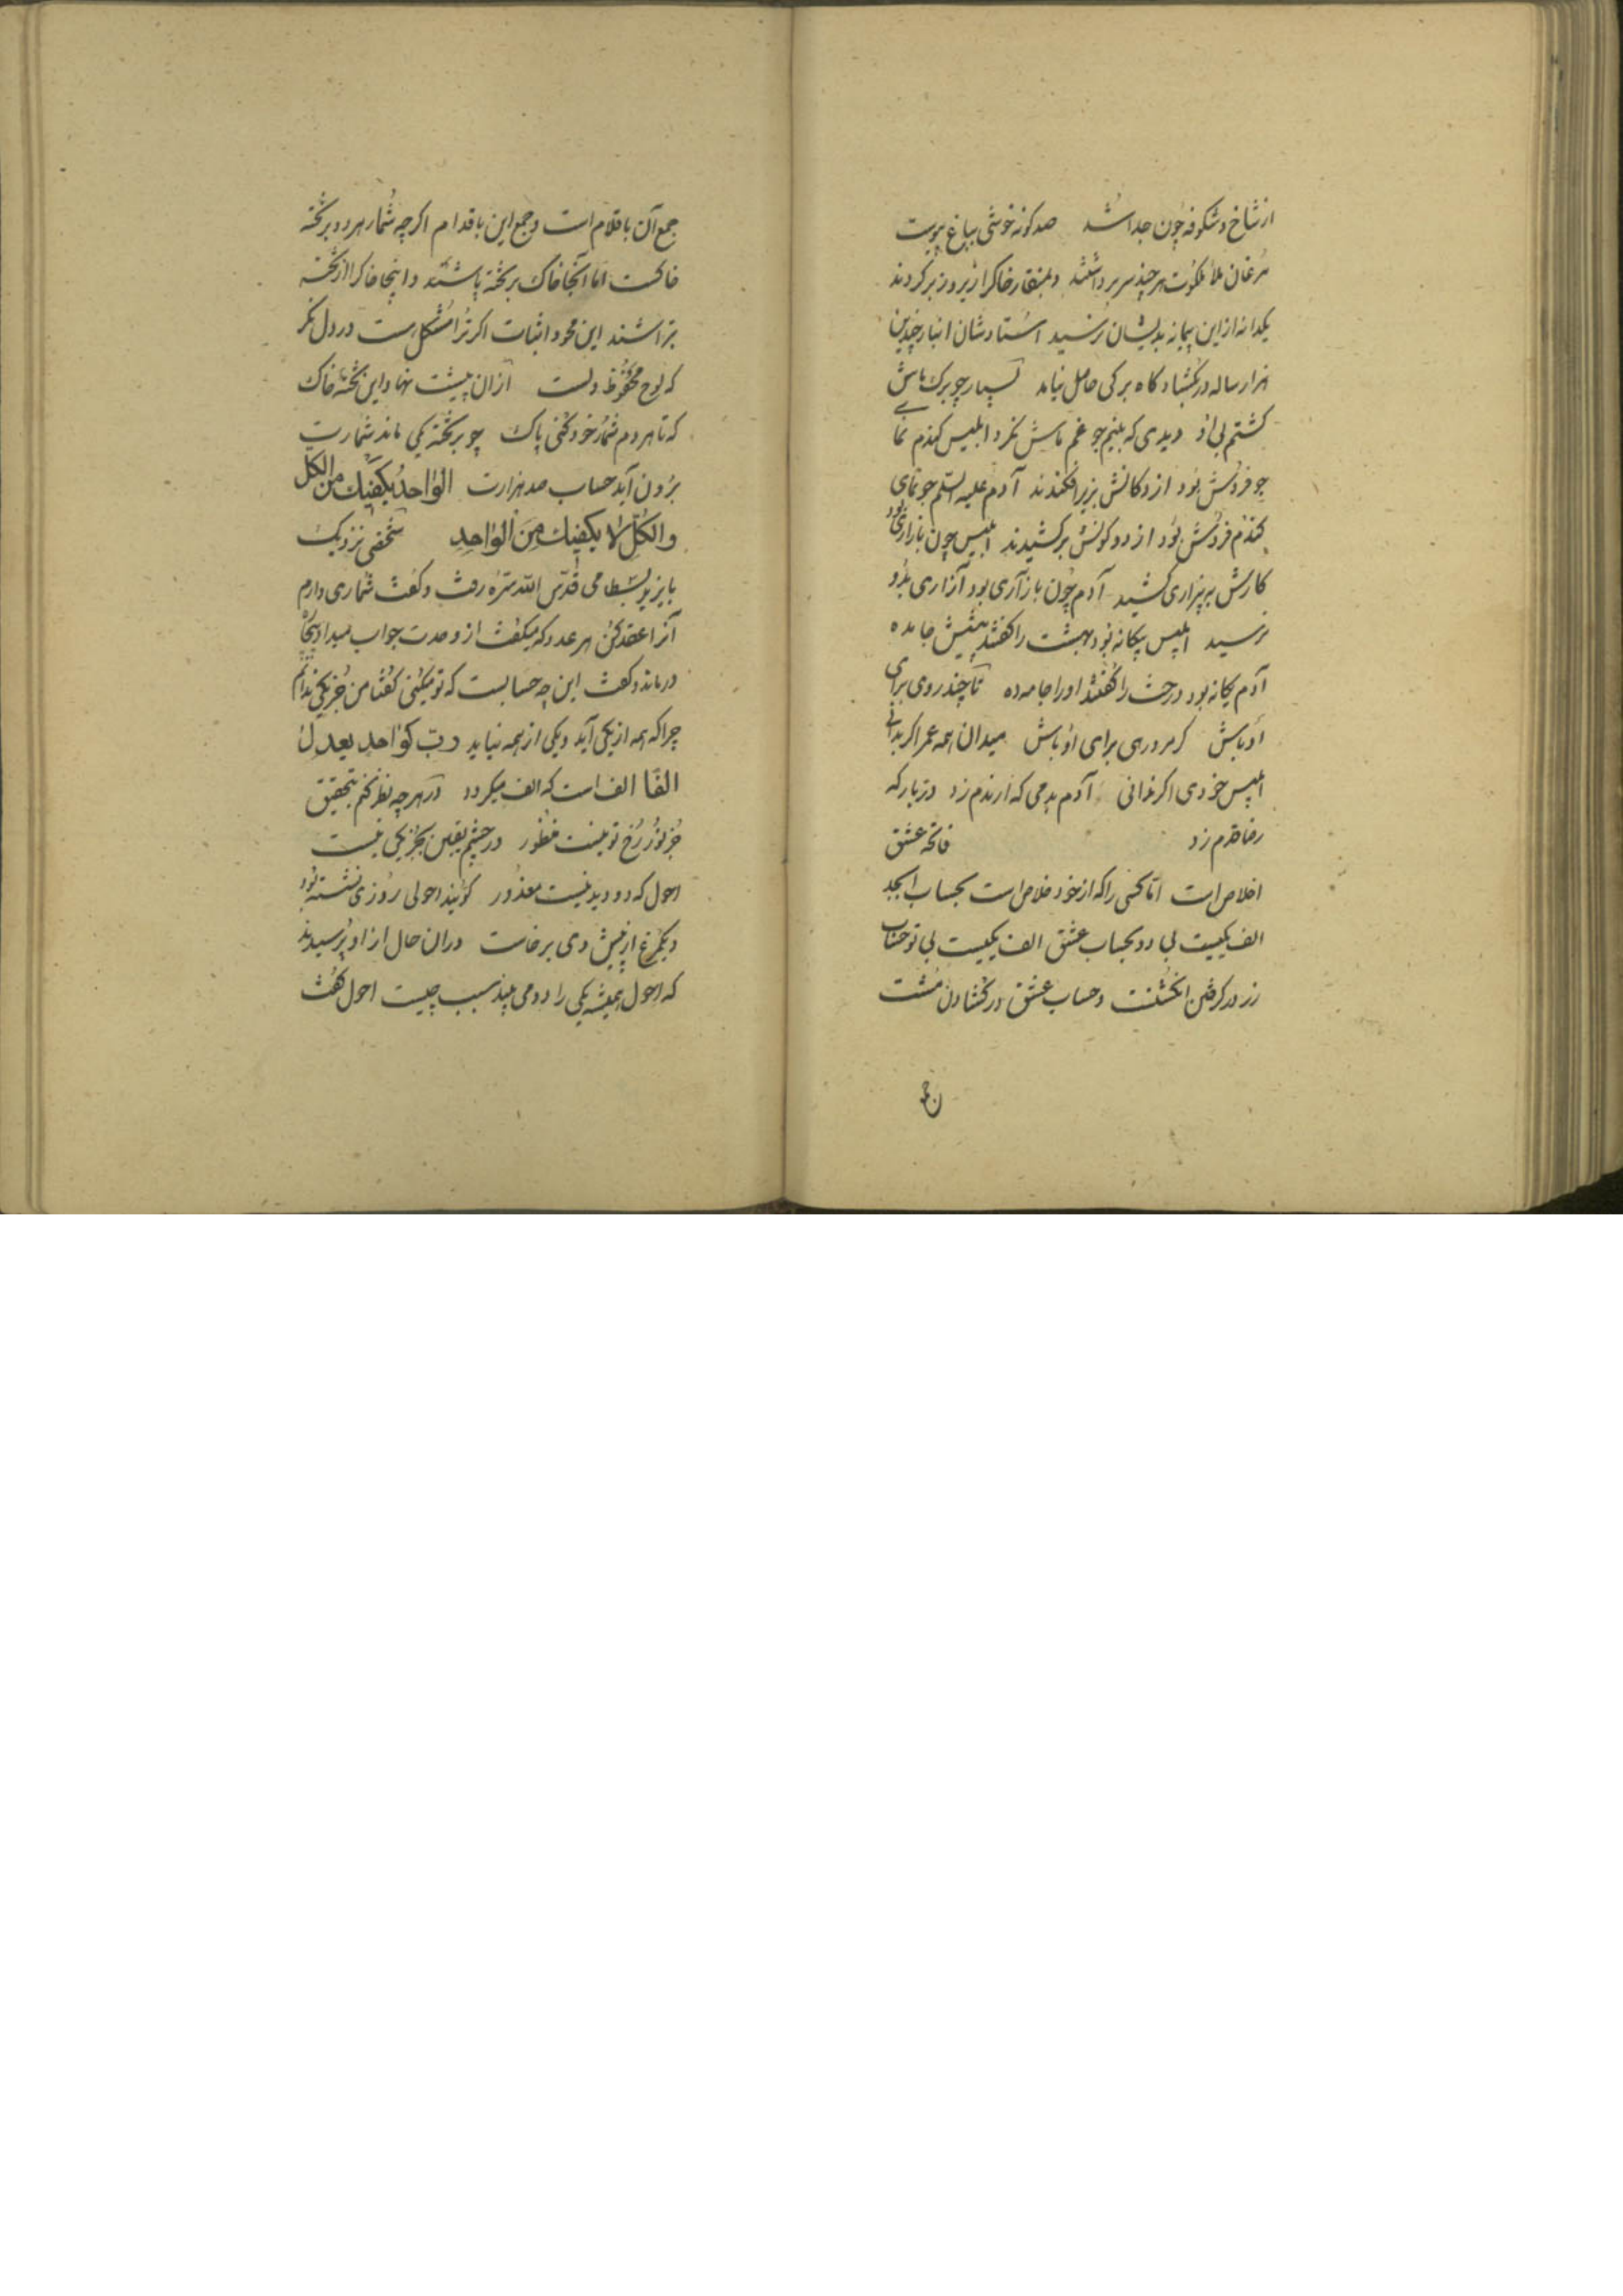 از شاخ و شکوفه چون جدا شد صد گونه خوشی بباغ پیوست
مرغان ملأ ملکوت هر چند سر برداشتند و بمنقار خاک را زیر و زبر کردند
یکدانه ازین پیمانه بدیشان نرسید استادشان انبار چندین
هزار ساله در بگشاد کاه برگی حاصل نیامد بسیار چو برک باش
کشتم بی او دیدی که بنیم جو غم ماش نکرد ابلیس کندم نمای
جو فروش بود از دکانش بزیر افکندند آدم علیه السلم جو نمای
کندم فروش بود از دو کونش برکشیدند ابلیس چون بازاری بود
کارش به بیزاری کشید آدم چون بازآری بود آزاری بدو
نرسید ابلیس بیکانه بود بهشت را گفتند پیشش جا مده
آدم یکانه بود درخت را گفتند او را جامه ده تا چند روی برای
اوباش کر مردری برای او باش میدان همه عمر اکر بدانی
ابلیس خودی اکر ندانی آدم بدمی که از ندم زد در بارکه
رضا قدم زد فاتحه عشق
اخلاص است اما کسی را که از خود خلاص است بحساب ابجد
الف یکیست بی دو بحساب عشق الف یکیست بی تو حساب
زر در کرفتن انکشتست و حساب عشق در کشادن مشت
جمع آن
جمع آن باقلام است و جمع این باقدام اکرچه شمار هر دو بر تخته
خاکست اما آنجا خاک بر تخته پاشند و اینجا خاک را از تخته
تراشند این محو و اثبات اکر ترا مشکلست در دل نکر
که لوح محفوظ دلست از ان پیشت نهاد این تخته خاک
که تا هر دم شمار خود کنی پاک چو بر تخته یکی ماند شمارت
برون آید حساب صد هزارت الواحد یکفیك من الکل
والکل لا یکفیك من الواحد شخصی نزدیک
بایزید بسطامی قدس الله سره رفت و گفت شماری دارم
آنرا عقد کن هر عدد که میکفت از وحدت جواب میداد بیچاره
درماند و گفت این چه حسابست که تو میکنی گفتا من جز یکی ندانم
چرا که همه از یکی آید و یکی از همه نیاید رب کواحد یعدل
الفا الف است که الف میکردد در هر چه نظر کنم بتحقیق
جز نور رخ تو نیست منظور در چشم یقین بجز یکی نیست
احول که دو دید نیست معذور کویند احولی روزی نشسته بود
و یکمرغ از پیش وی برخاست در ان حال از او پرسیدند
که احول همیشه یکی را دو می بیند سبب چیست احول گفت